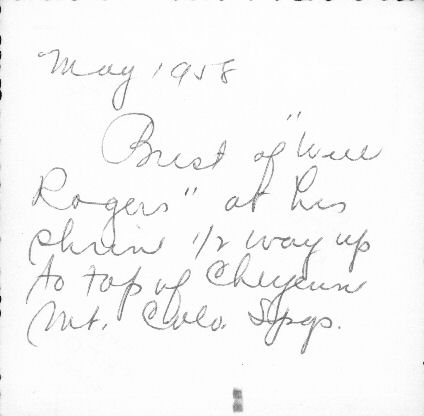 May 1958
Bust of "Will
Rogers" at his
shrine 1/2 way up
to top of Cheyenne
Mt. Colo. Spgs.